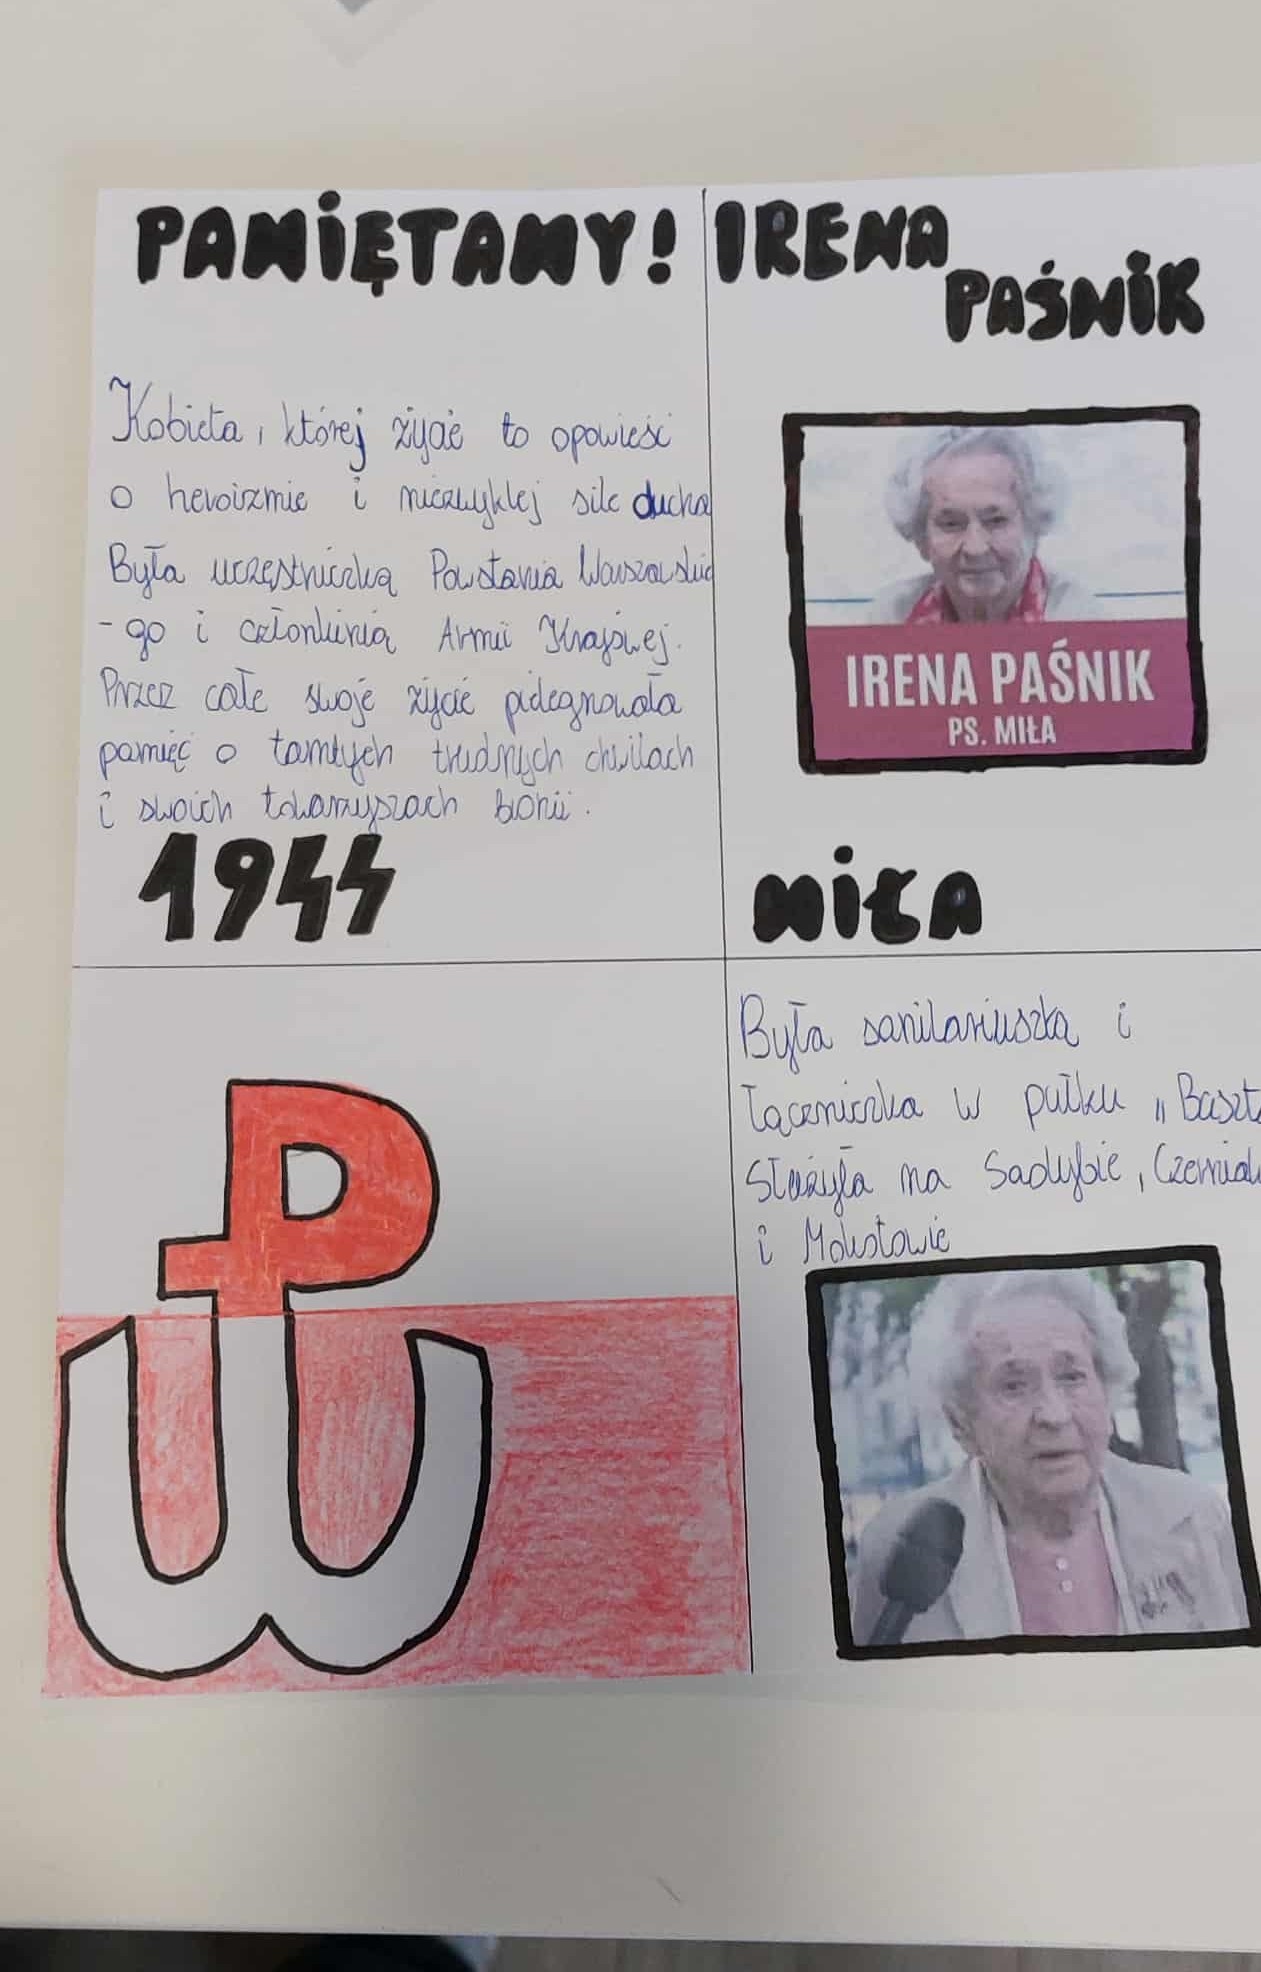 PAMIĘTAMY!
Kobieta, której życie to opowieść
o heroizmie i niezwykłej sile ducha
Była uczęstniczką Powstania Warszawskie
-go i członkinią Armii Krajowej.
Przez całe swoje życie pielęgnowała
pamięć o tamtych trudnych chwilach
i swoich towarzyszach broni.
1944
IRENA
PAŚNIK
IRENA PAŚNIK
PS. MIŁA
MIŁA
Była sanitariuszką i
łączniczka w pułku „Baszt
Służyła na Sadybie, Czerniak
i Mokotowie
PW